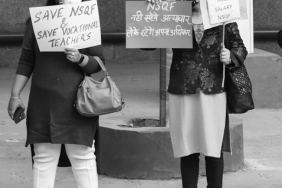 SAVE NSQF
& SAVE VOCATIONAL
TEACHERS
NSQF
नहीं सहेंगे अत्याचार
लेके रहेंगे अपना अधिकार
SALARY
NSQF